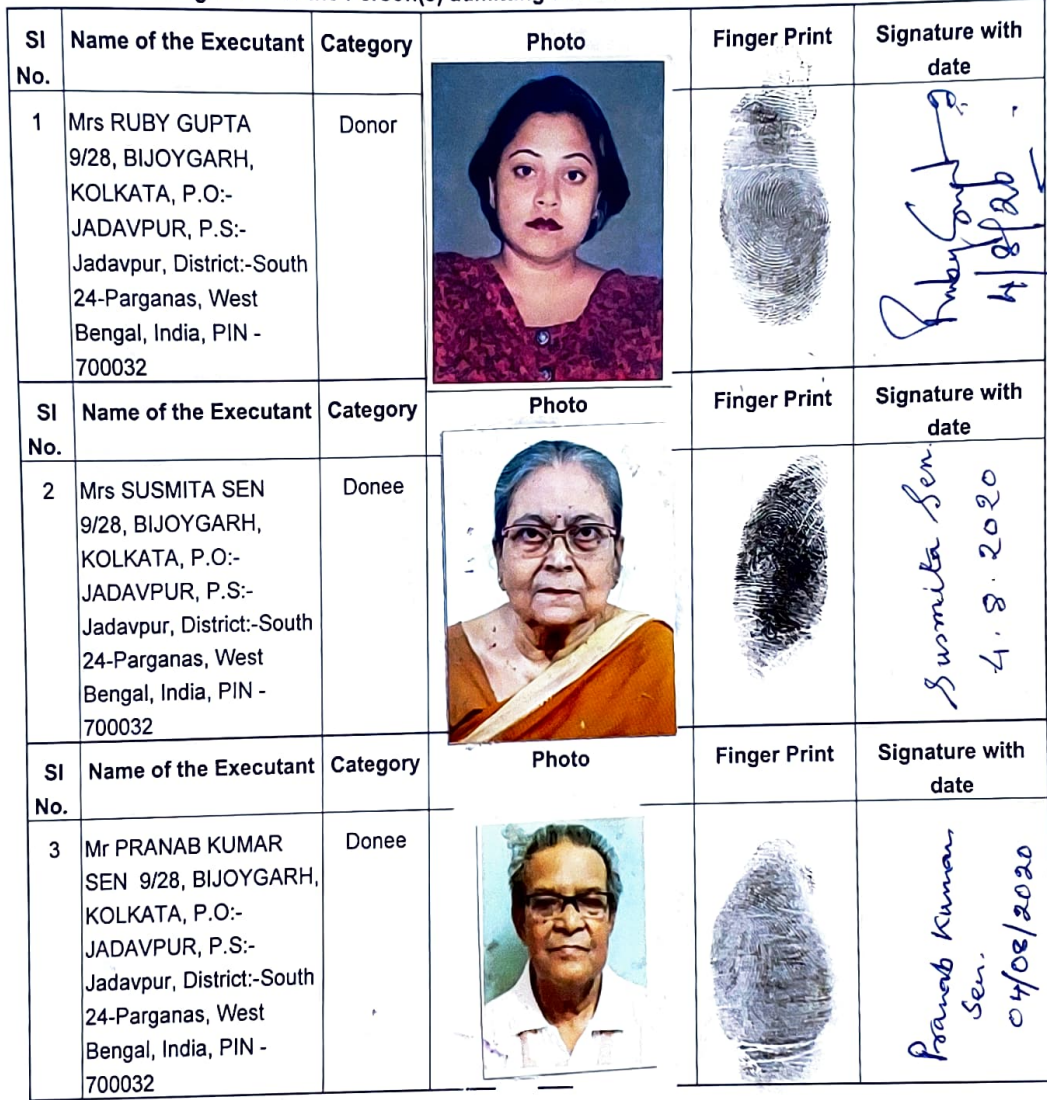 Person(s) admitting
SI No. Name of the Executant Category Photo Finger Print Signature with date
1 Mrs RUBY GUPTA Donor
9/28, BIJOYGARH,
KOLKATA, P.O:-
JADAVPUR, P.S:-
Jadavpur, District:-South
24-Parganas, West
Bengal, India, PIN -
700032
Ruby Gupta
4/8/20
SI No. Name of the Executant Category Photo Finger Print Signature with date
2 Mrs SUSMITA SEN Donee
9/28, BIJOYGARH,
KOLKATA, P.O:-
JADAVPUR, P.S:-
Jadavpur, District:-South
24-Parganas, West
Bengal, India, PIN -
700032
Susmita Sen.
4.8.2020
SI No. Name of the Executant Category Photo Finger Print Signature with date
3 Mr PRANAB KUMAR Donee
SEN 9/28, BIJOYGARH,
KOLKATA, P.O:-
JADAVPUR, P.S:-
Jadavpur, District:-South
24-Parganas, West
Bengal, India, PIN -
700032
Pranab Kumar
Sen.
04/08/2020